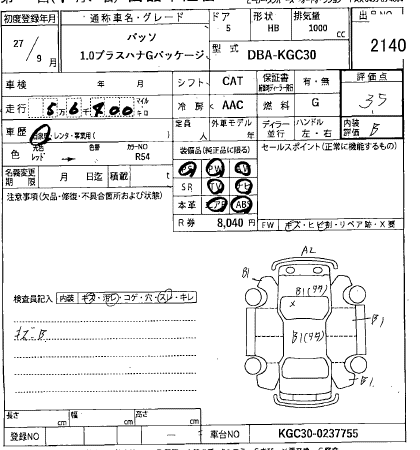 初度登録年月 通称車名・グレード ドア 形状 排気量
27/9月 パッソ 5 HB 1000cc
1.0プラスハナGパッケージ 型式 DBA-KGC30 2140
車検 年 月 シフト CAT 保証書 有・無 評価点
走行 56400 マイル キロ 冷房 AAC 燃料 G 3.5
車歴 自家用・レンタ・事業用( ) 定員 人 外車モデル 年 ディーラー 並行 ハンドル 左・右 内装評価 B
色 元色 レッド → 色替 カラーNO R54 装備品(純正品に限る) セールスポイント(正常に機能する)
PS PW
名義変更期限 月 日迄 積載 t SR TV ナビ
注意事項(欠品・修復・不具合箇所および状態) 本革 エアB ABS
R券 8,040円 FW キズ・ヒビ割・リペア跡・X要
A2
B1 B1(タタ)
X
検査員記入 内装 キズ・汚レ・コゲ・穴・スレ・キレ
B1(タタ) B1
B1
長さ cm 幅 cm 高さ cm
登録NO — 車台NO KGC30-0237755